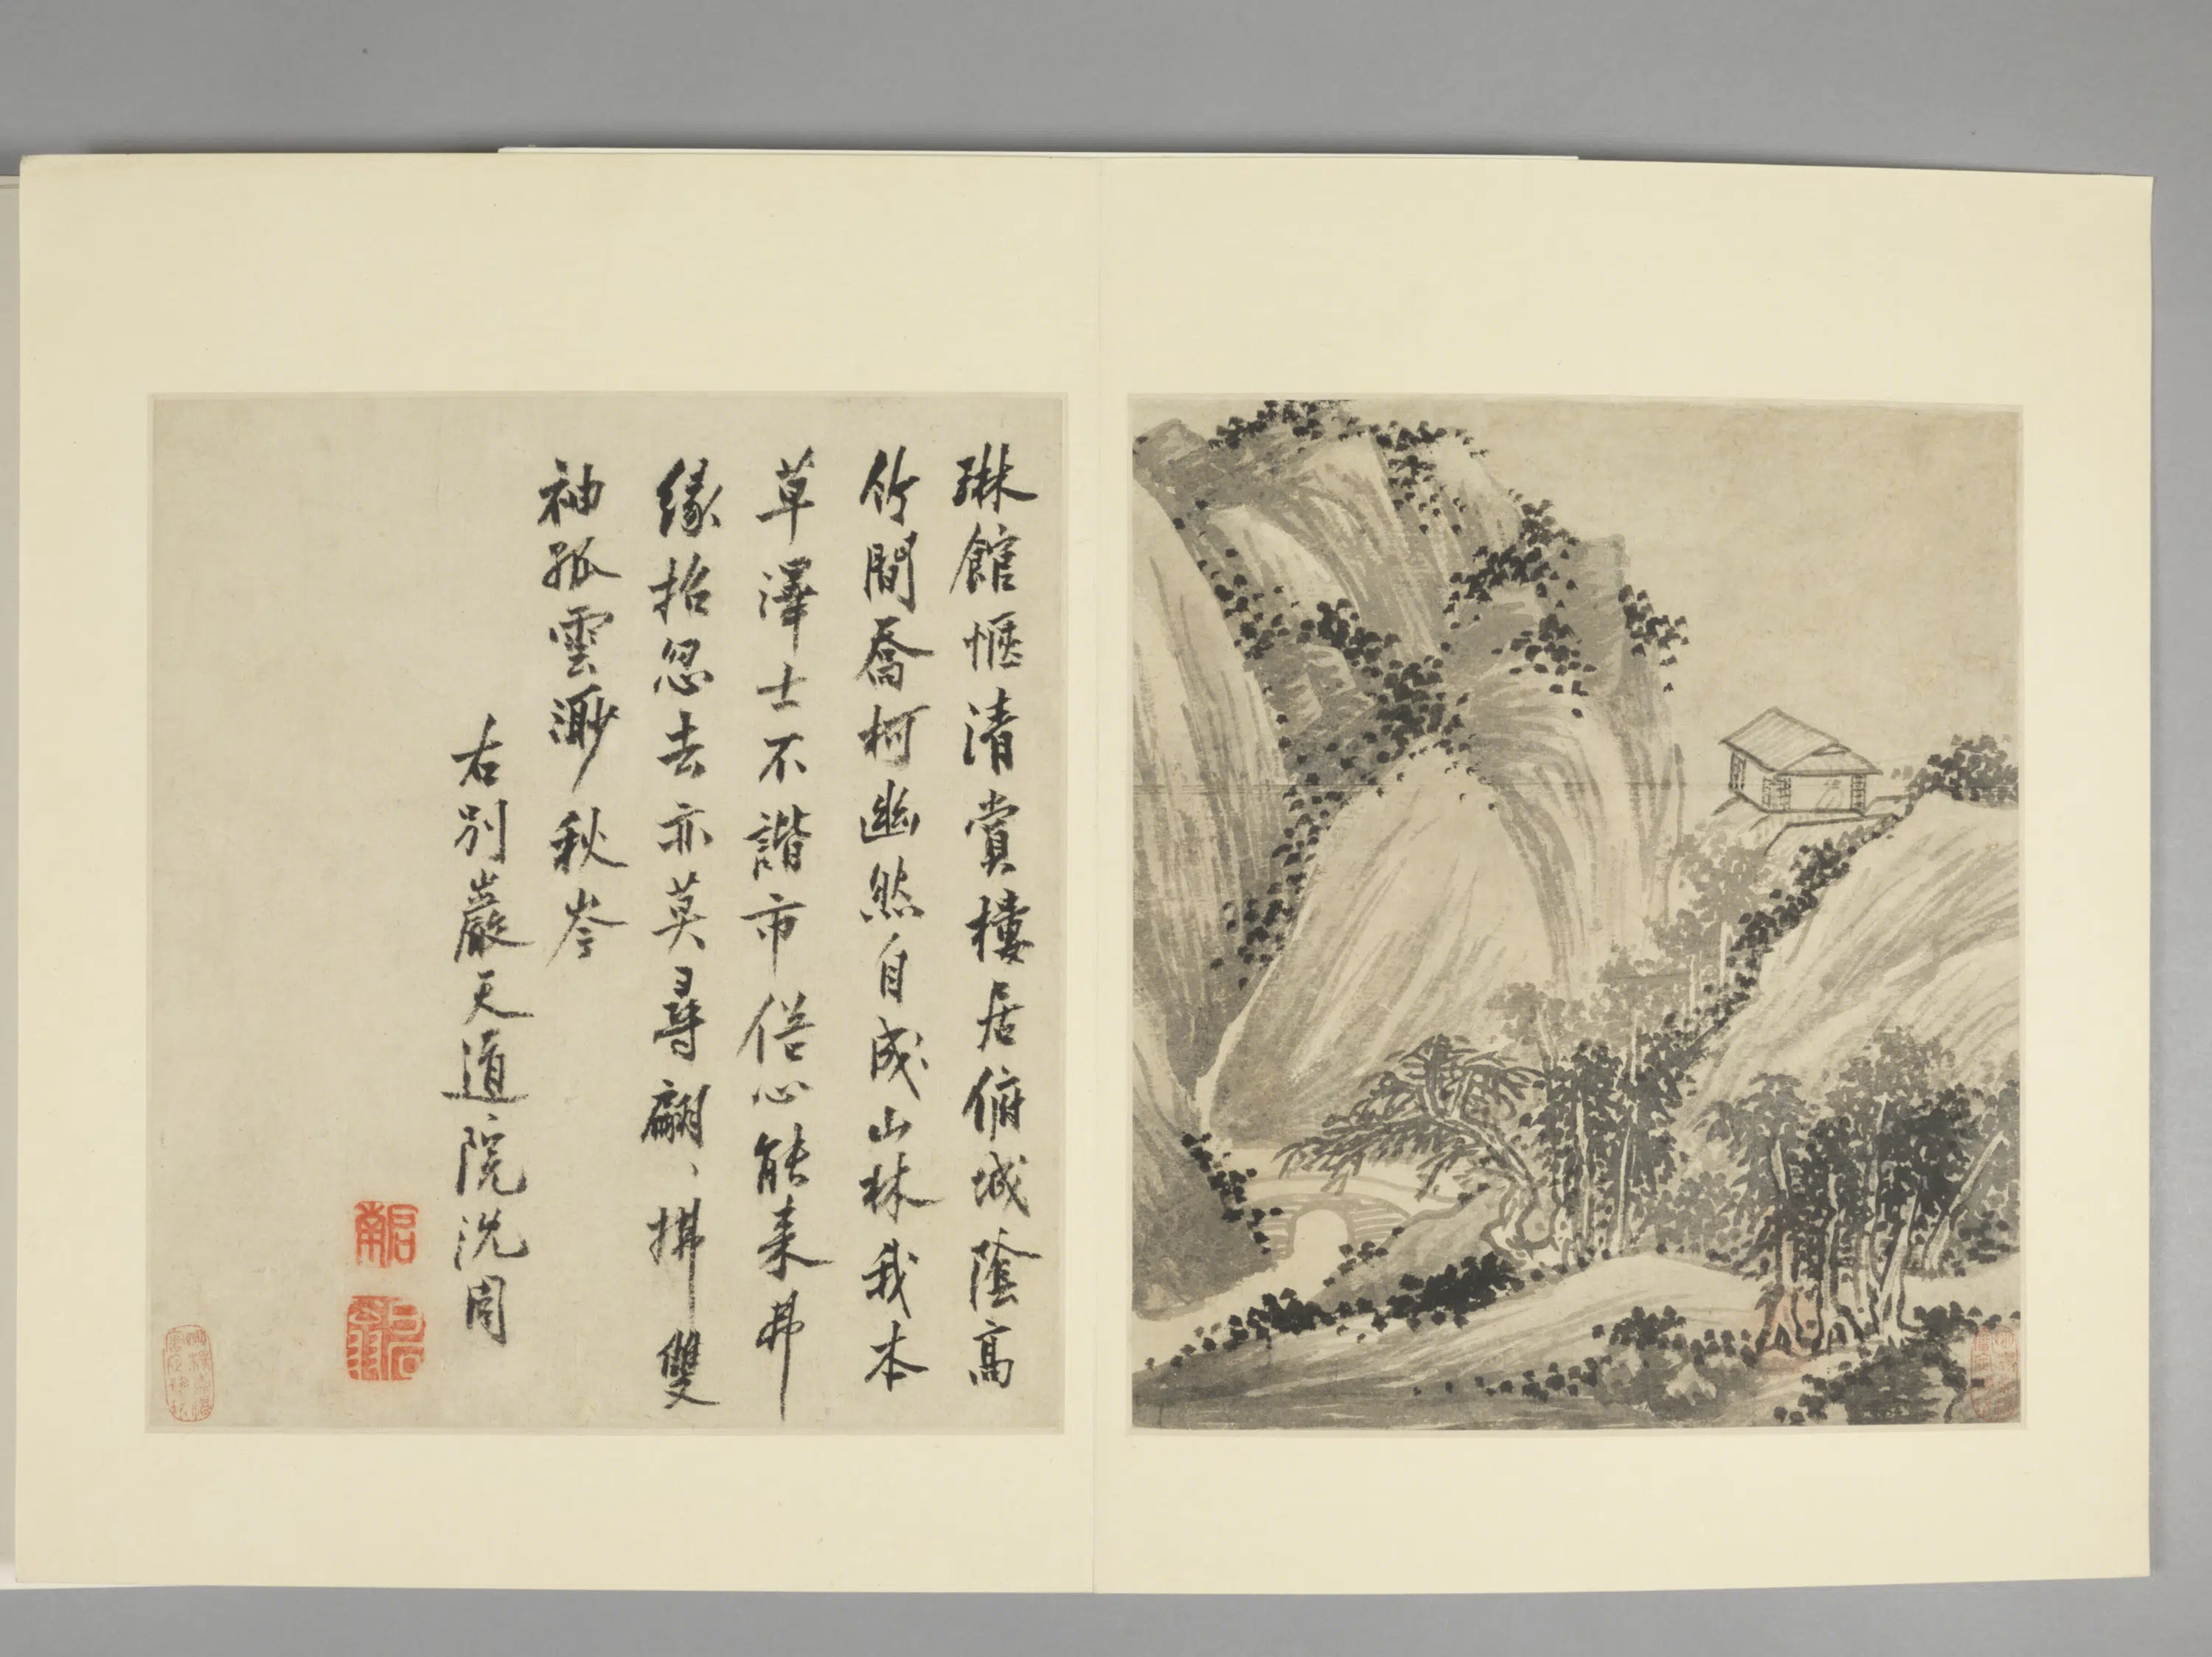 琳館愜清賞樓居俯城陰高
竹間喬柯幽然自成山林我本
草澤士不諧市俗心能來弗
緣招忽去亦莫尋翩〻拂雙
袖孤雲渺秋岑
右別巖天道院沈周
啟南
石田